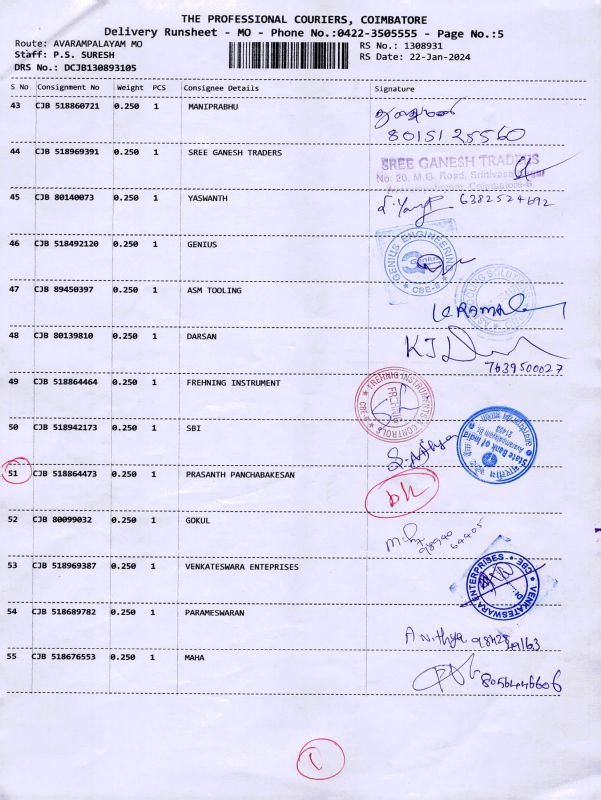 THE PROFESSIONAL COURIERS, COIMBATORE
Delivery Runsheet - MO - Phone No.:0422-3505555 - Page No.:5
Route: AVARAMPALAYAM MO RS No.: 1308931
Staff: P.S. SURESH RS Date: 22-Jan-2024
DRS No.: DCJB130893105
S No Consignment No Weight PCS Consignee Details Signature
43 CJB 518860721 0.250 1 MANIPRABHU
8015125560
44 CJB 518969391 0.250 1 SREE GANESH TRADERS
SREE GANESH TRADERS
No. 26, M.G. Road, Srinivasa Nagar
Coimbatore-6
45 CJB 80140073 0.250 1 YASWANTH
6382524692
46 CJB 518492120 0.250 1 GENIUS
GENIUS ENGINEERING
Genius
CBE-6
47 CJB 89450397 0.250 1 ASM TOOLING
TOOLING SOLUTION
48 CJB 80139810 0.250 1 DARSAN
7639500027
49 CJB 518864464 0.250 1 FREHNING INSTRUMENT
FREHNING INSTRUMENTS & CONTROLS
CBE-6
50 CJB 518942173 0.250 1 SBI
S. Sathya
State Bank of India
51 CJB 518864473 0.250 1 PRASANTH PANCHABAKESAN
52 CJB 80099032 0.250 1 GOKUL
98940
64405
53 CJB 518969387 0.250 1 VENKATESWARA ENTEPRISES
VENKATESWARA ENTERPRISES
CBE
54 CJB 518689782 0.250 1 PARAMESWARAN
A Nithya 98428
49163
55 CJB 518676553 0.250 1 MAHA
8056446606
1